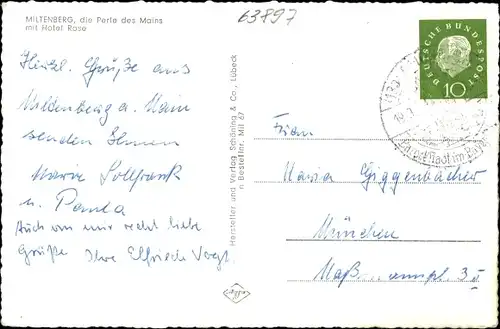 MILTENBERG, die Perle des Mains
mit Hotel Rose
63897
Herzl. Grüße aus
Mildenberg a. Main
senden Ihnen
Maria
u. Paula
Auch von mir recht liebe
Grüße Ihre Elfriede Vergt.
Hersteller und Verlag Schöning & Co., Lübeck
n Bestellnr. Mil 67
DEUTSCHE BUNDESPOST
10
Frau
Maria Giggenbacher
München